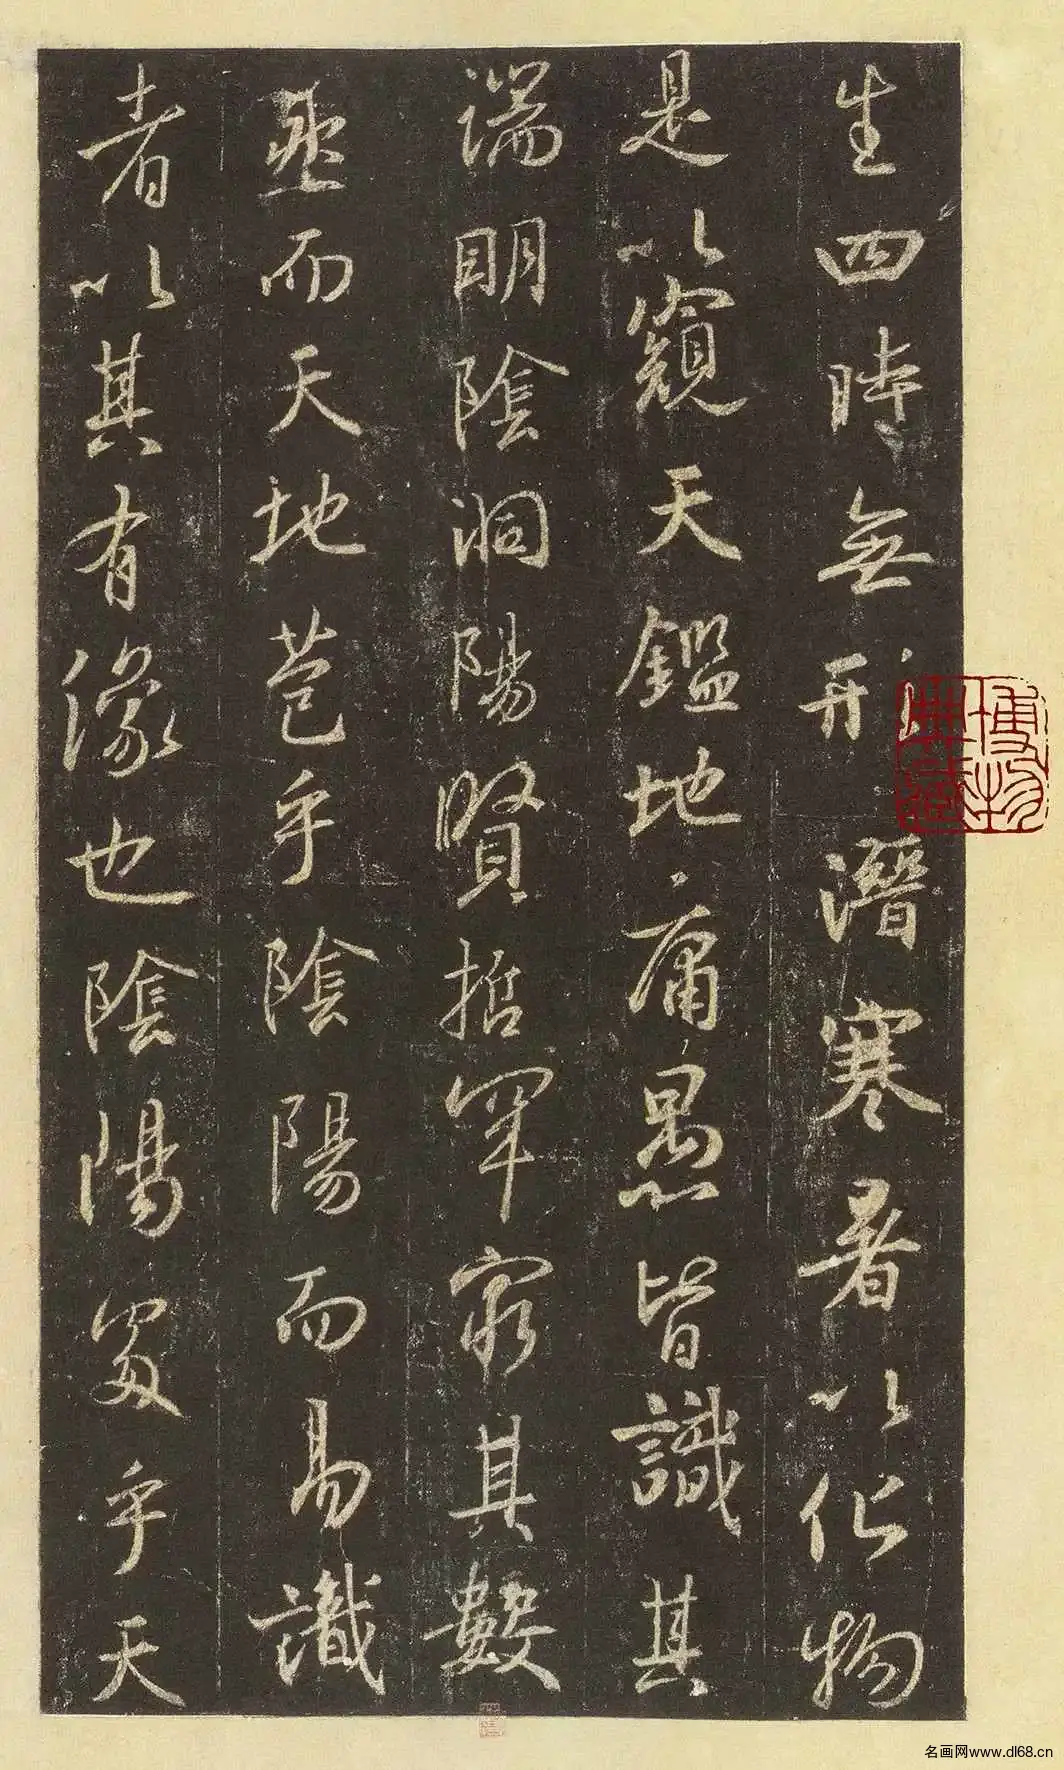 生四時無形潛寒暑以化物
是以窺天鑑地庸愚皆識其
端明陰洞陽賢哲罕窮其數
然而天地苞乎陰陽而易識
者以其有像也陰陽處乎天
名画网www.dl68.cn